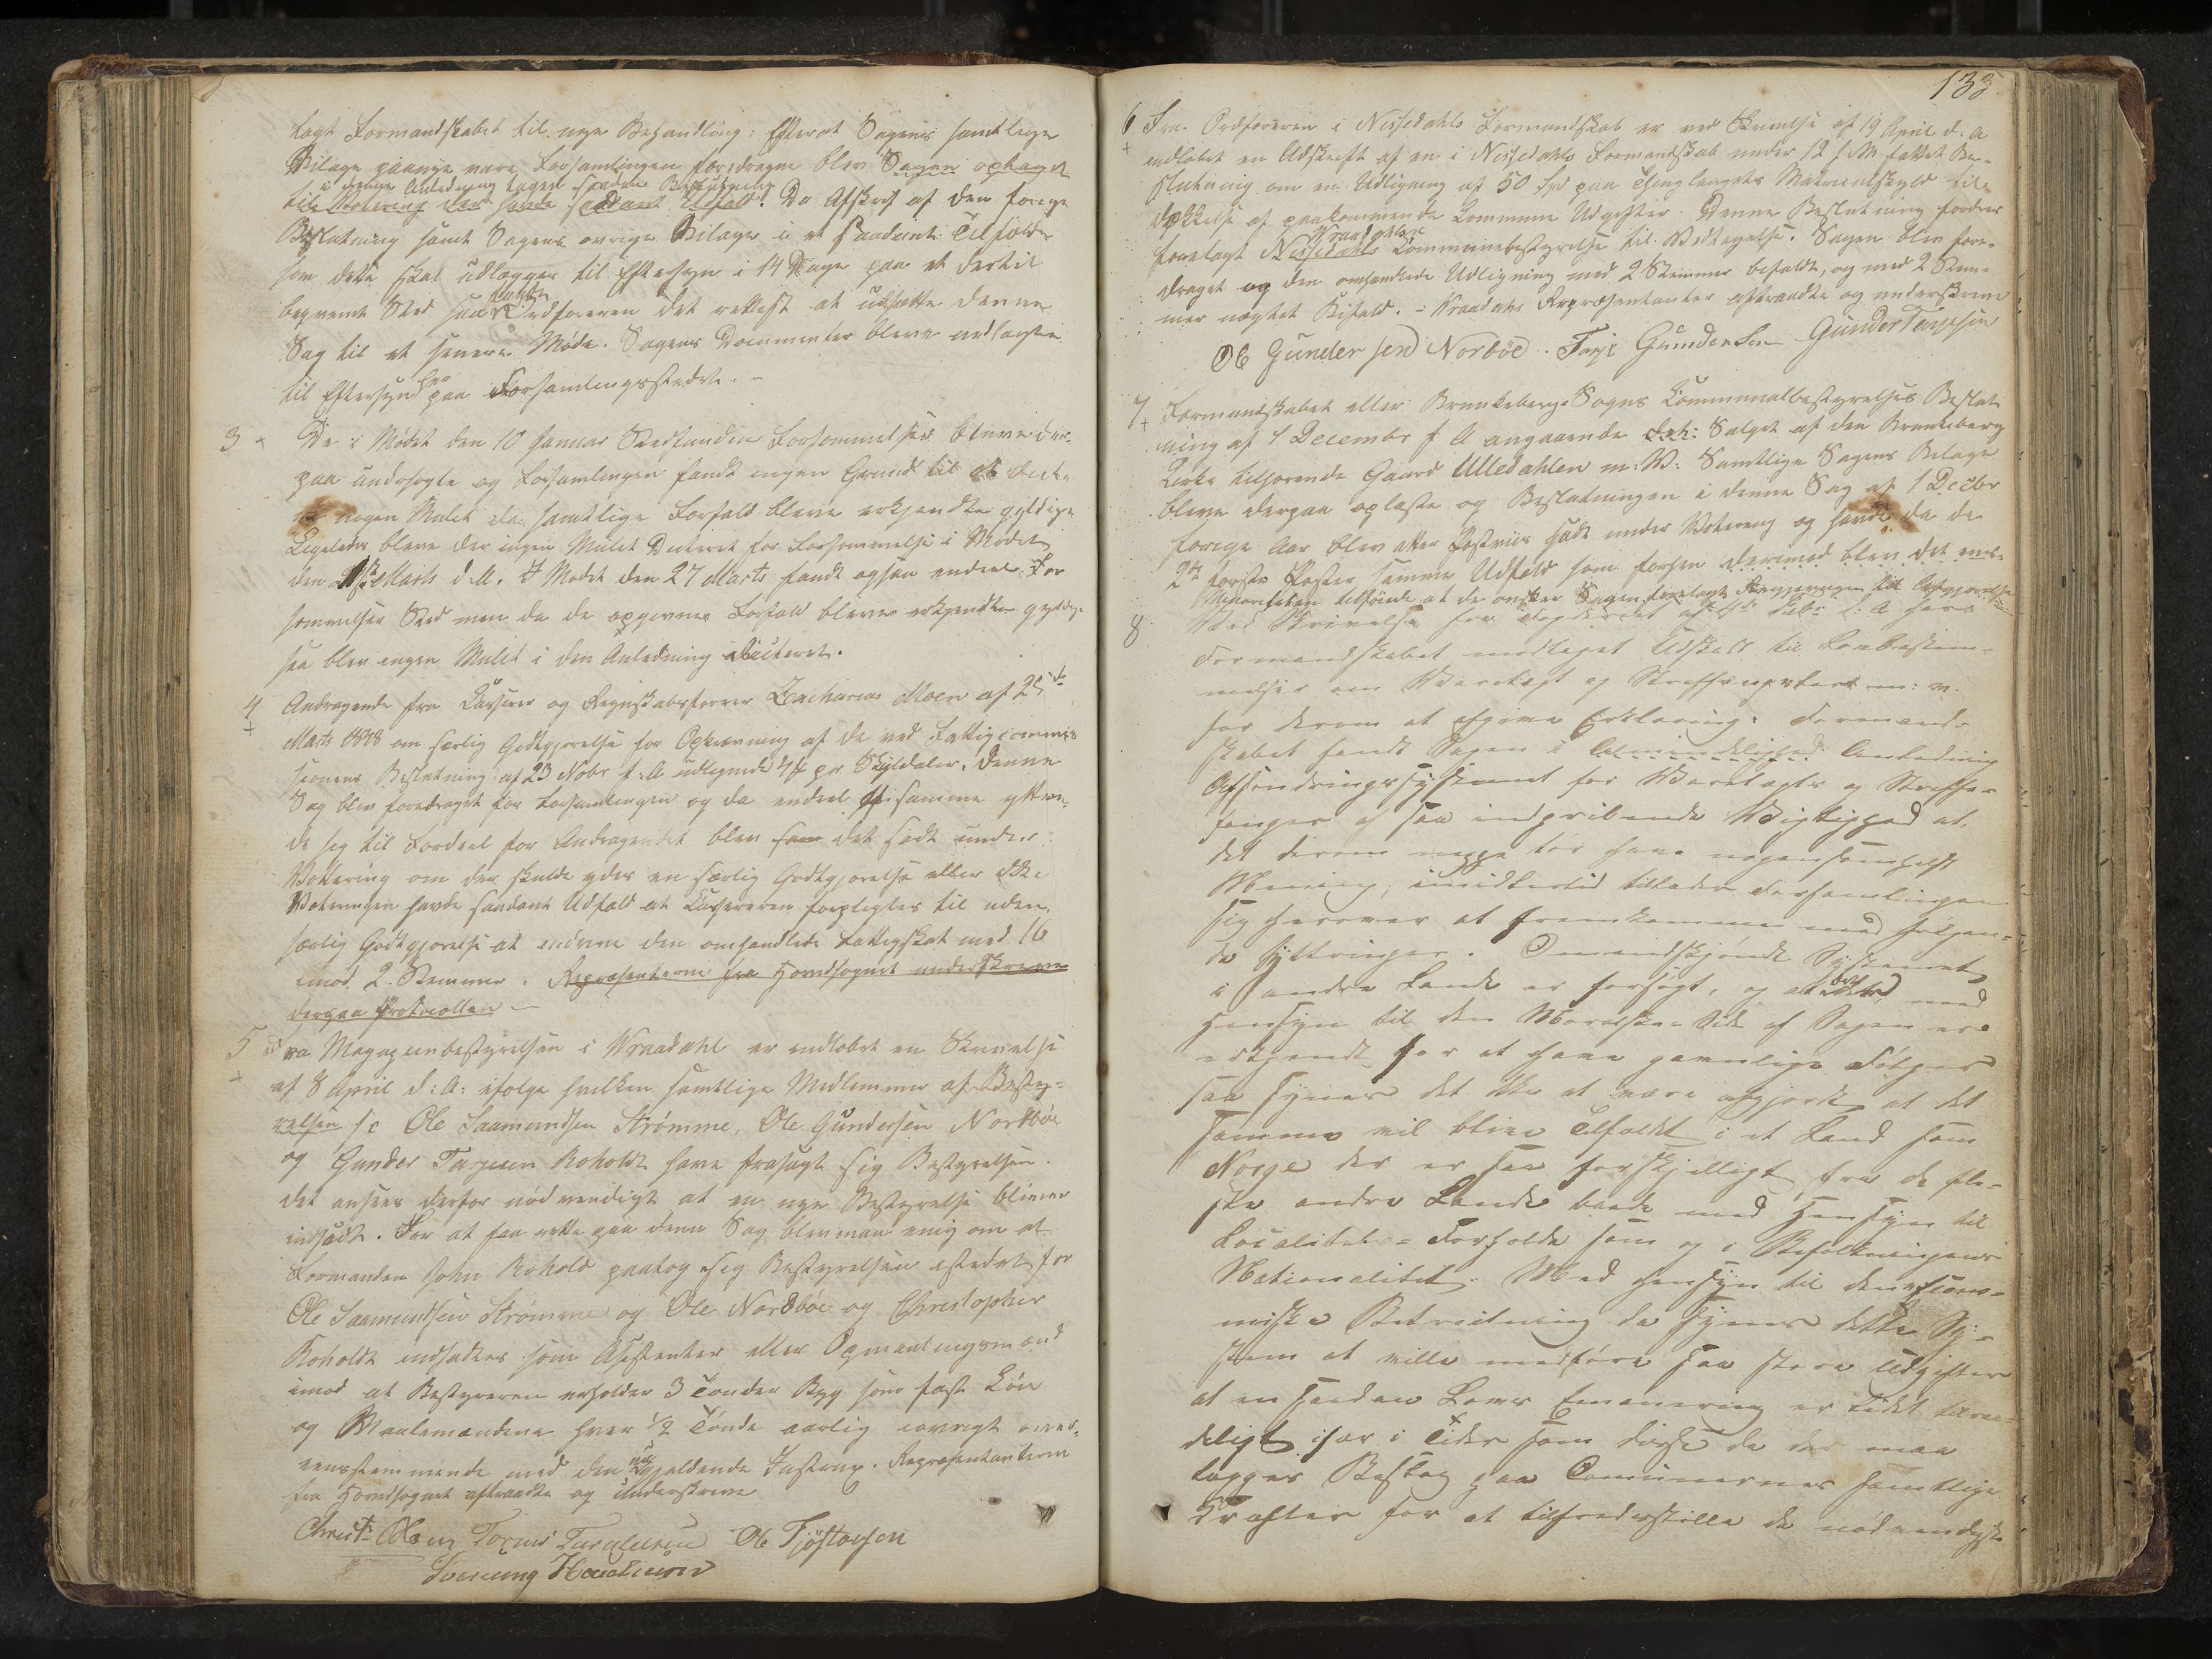 tagt Formandskabet til nye Behandling: Efterat Sagens samtlige
Bilage paanye vare Forsamlingen foredragne blev Sagen optaget
i denne Anledning tagen saadan Beslutning
til Votering der havde saadant Udfald: Da Afskrift af den forige
Beslutning samt Sagens øvrige Bilage i et saadant Tilfælde
som dette skal udlægges til Eftersyn i 14 Dage paa et dertil
beqvemt Sted saa fandt Ordføreren det rettest at udsætte denne
Sag til et senere Møde. Sagens Documenter bleve udlagte
til Eftersyn her paa Forsamlingsstedet. -
3 De i Mødet den 10 Januar Stedfundne Forsømmelser bleve der-
paa undersøgte og Forsamlingen fandt ingen Grund til at dicte-
re nogen Mulct da samtlige Forfald bleve erkjendte gyldige
Ligeledes bleve der ingen Mulct Dicteret for Forsømmelse i Mødet
den Marts d. A. I Mødet den 27 Marts fandt ogsaa endeel For
sømmelser Sted men da de opgivne Forfald bleve erkjendte gyldige
saa blev ingen Mulct i den Anledning dicteret.
4 Andragende fra Casserer og Regnskabsfører Zacharias Moen af 25de
Marts 1848 om særlig Godtgjørelse for Opkrævning af de ved Fattigcommis
sionens Beslutning af 23 Novbr f. A udlignede 4 ß pr Skylddaler. Denne
Sag blev foredraget for Forsamlingen og da endeel af samme yttre-
de sig til Fordeel for Andragendet blev som det sadt under
Votering om der skulde ydes en særlig Godtgjørelse eller ikke
Voteringen havde saadant Udfald at Cassereren forpligtes til uden
særlig Godtgjørelse at inddrive den omhandlede Fattigskat med 16
imod 2 Stemmer. Repræsentanterne fra Hovedsognet underskreve
derpaa Protocollen -
5 Fra Magazinbestyrelsen i Vraadahl er indløbet en Skrivelse
af 8 April d: A: ifølge hvilken samtlige Medlemmer af Besty-
relsen sc Ole Saamundsen Strømme, Ole Gundersen Nordbøe
og Gunder Tarjesen Roholdt have frasagt sig Bestyrelsen.
det ansees derfor nödvendigt at en nye Bestyrelse bliver
indsadt. For at faa rette paa denne Sag blev man enig om at
Formanden John Rohold paatog sig Bestyrelsen istedet for
Ole Saamundsen Strømme og Ole Nordbøe og Christopher
Roholdt indsadtes som Assistenter eller Opmaalingsmænd
imod at Bestyreren erholder 3 Tønder Byg som fast Løn
og Maalemændene hver 1/2 Tønde aarlig iøvrigt over-
eensstemmende med den nu gjældende Instrux. Repræsentanterne
fra Hovedsognet aftraadte og Underskreve
Ole Tjöstolfsen
133
6 Fra Ordføreren i Nissedahls Formandskab er ved Skrivelse af 19 April d. A
indløbet en Udskrift af en i Nissedahls Formandskab under 12 f. M. fattet Be-
slutning om en Udligning af 50 Spd paa Thinglaugets Matriculskyld til
Dækkelse af paakommende Commune Udgifter. Denne Beslutning fordres
Vraadahls
forelagt Nissedahls Communebestyrelse til Vedtagelse. Sagen blev fore-
draget og den omhandlede Udligning med 2 Stemmer bifaldt, og med 2 Stem-
mer nægtet Bifald. - Vraadahls Repræsentanter aftraadte og underskreve
Ole Gundersen Norböe. Tarje Gundersen Gunder Tarjesen
7 Formandskabet eller Brunkeberg-Sogns Communalbestyrelses Beslut
ning af 1 December f A angaaende Salget af den Brunkeberg
Kirke tilhørende Gaard Ulledahlen m: V: Samtlige Sagens Bilage
bleve derpaa oplæste og Beslutningen i denne Sag af 1 Decbr
forige Aar blev atter Postviis sadt under Votering og havde da de
2de første Poster samme Udfald som forhen derimod blev det
Minoriteten tilføiede at de ønsker Sagen forelagt Regjeringen til Afgjørelse
8 Ved Skrivelse fra Fogderiet af d. A have
Formandskabet modtaget Udkast til Lovbestem-
melser om Varetægt og Straffarrester m: v.
for derom at afgive Erklæring. Formand-
skabet fandt Sagen i Almindelighed Anledning
Afsondringssystemet for Varetægts og Straffe-
fanger af saa indgribende Vigtighed at
det derom neppe tør have nogensomhelst
Mening, imidlertid tillader Forsamlingen
sig herover at fremkomme med følgen-
de Yttringer. Omendskjøndt Systemet
i andre Lande er forsøgt, og at det med
Hensyn til den Moralske Side af Sagen er
erkjendt for at have gavnlige Følger
saa synes det ikke at være afgjort at det
samme vil blive Tilfældet i et Land som
Norge der er saa forskjelligt fra de fle-
ste andre Lande baade med Hensyn til
Localitets-Forholde som og i Befolkningens
Nationalitet. Med Hensyn til den oecono-
miske Betragtning da synes dette Sy-
stem at ville medføre saa store Udgifter
at en saadan Lovs Emanering er lidet tilraa-
deligt især i Tider som disse da der maa
lægges Beslag paa Communernes samtlige
Kræfter for at tilfredsstille de nødvendigste